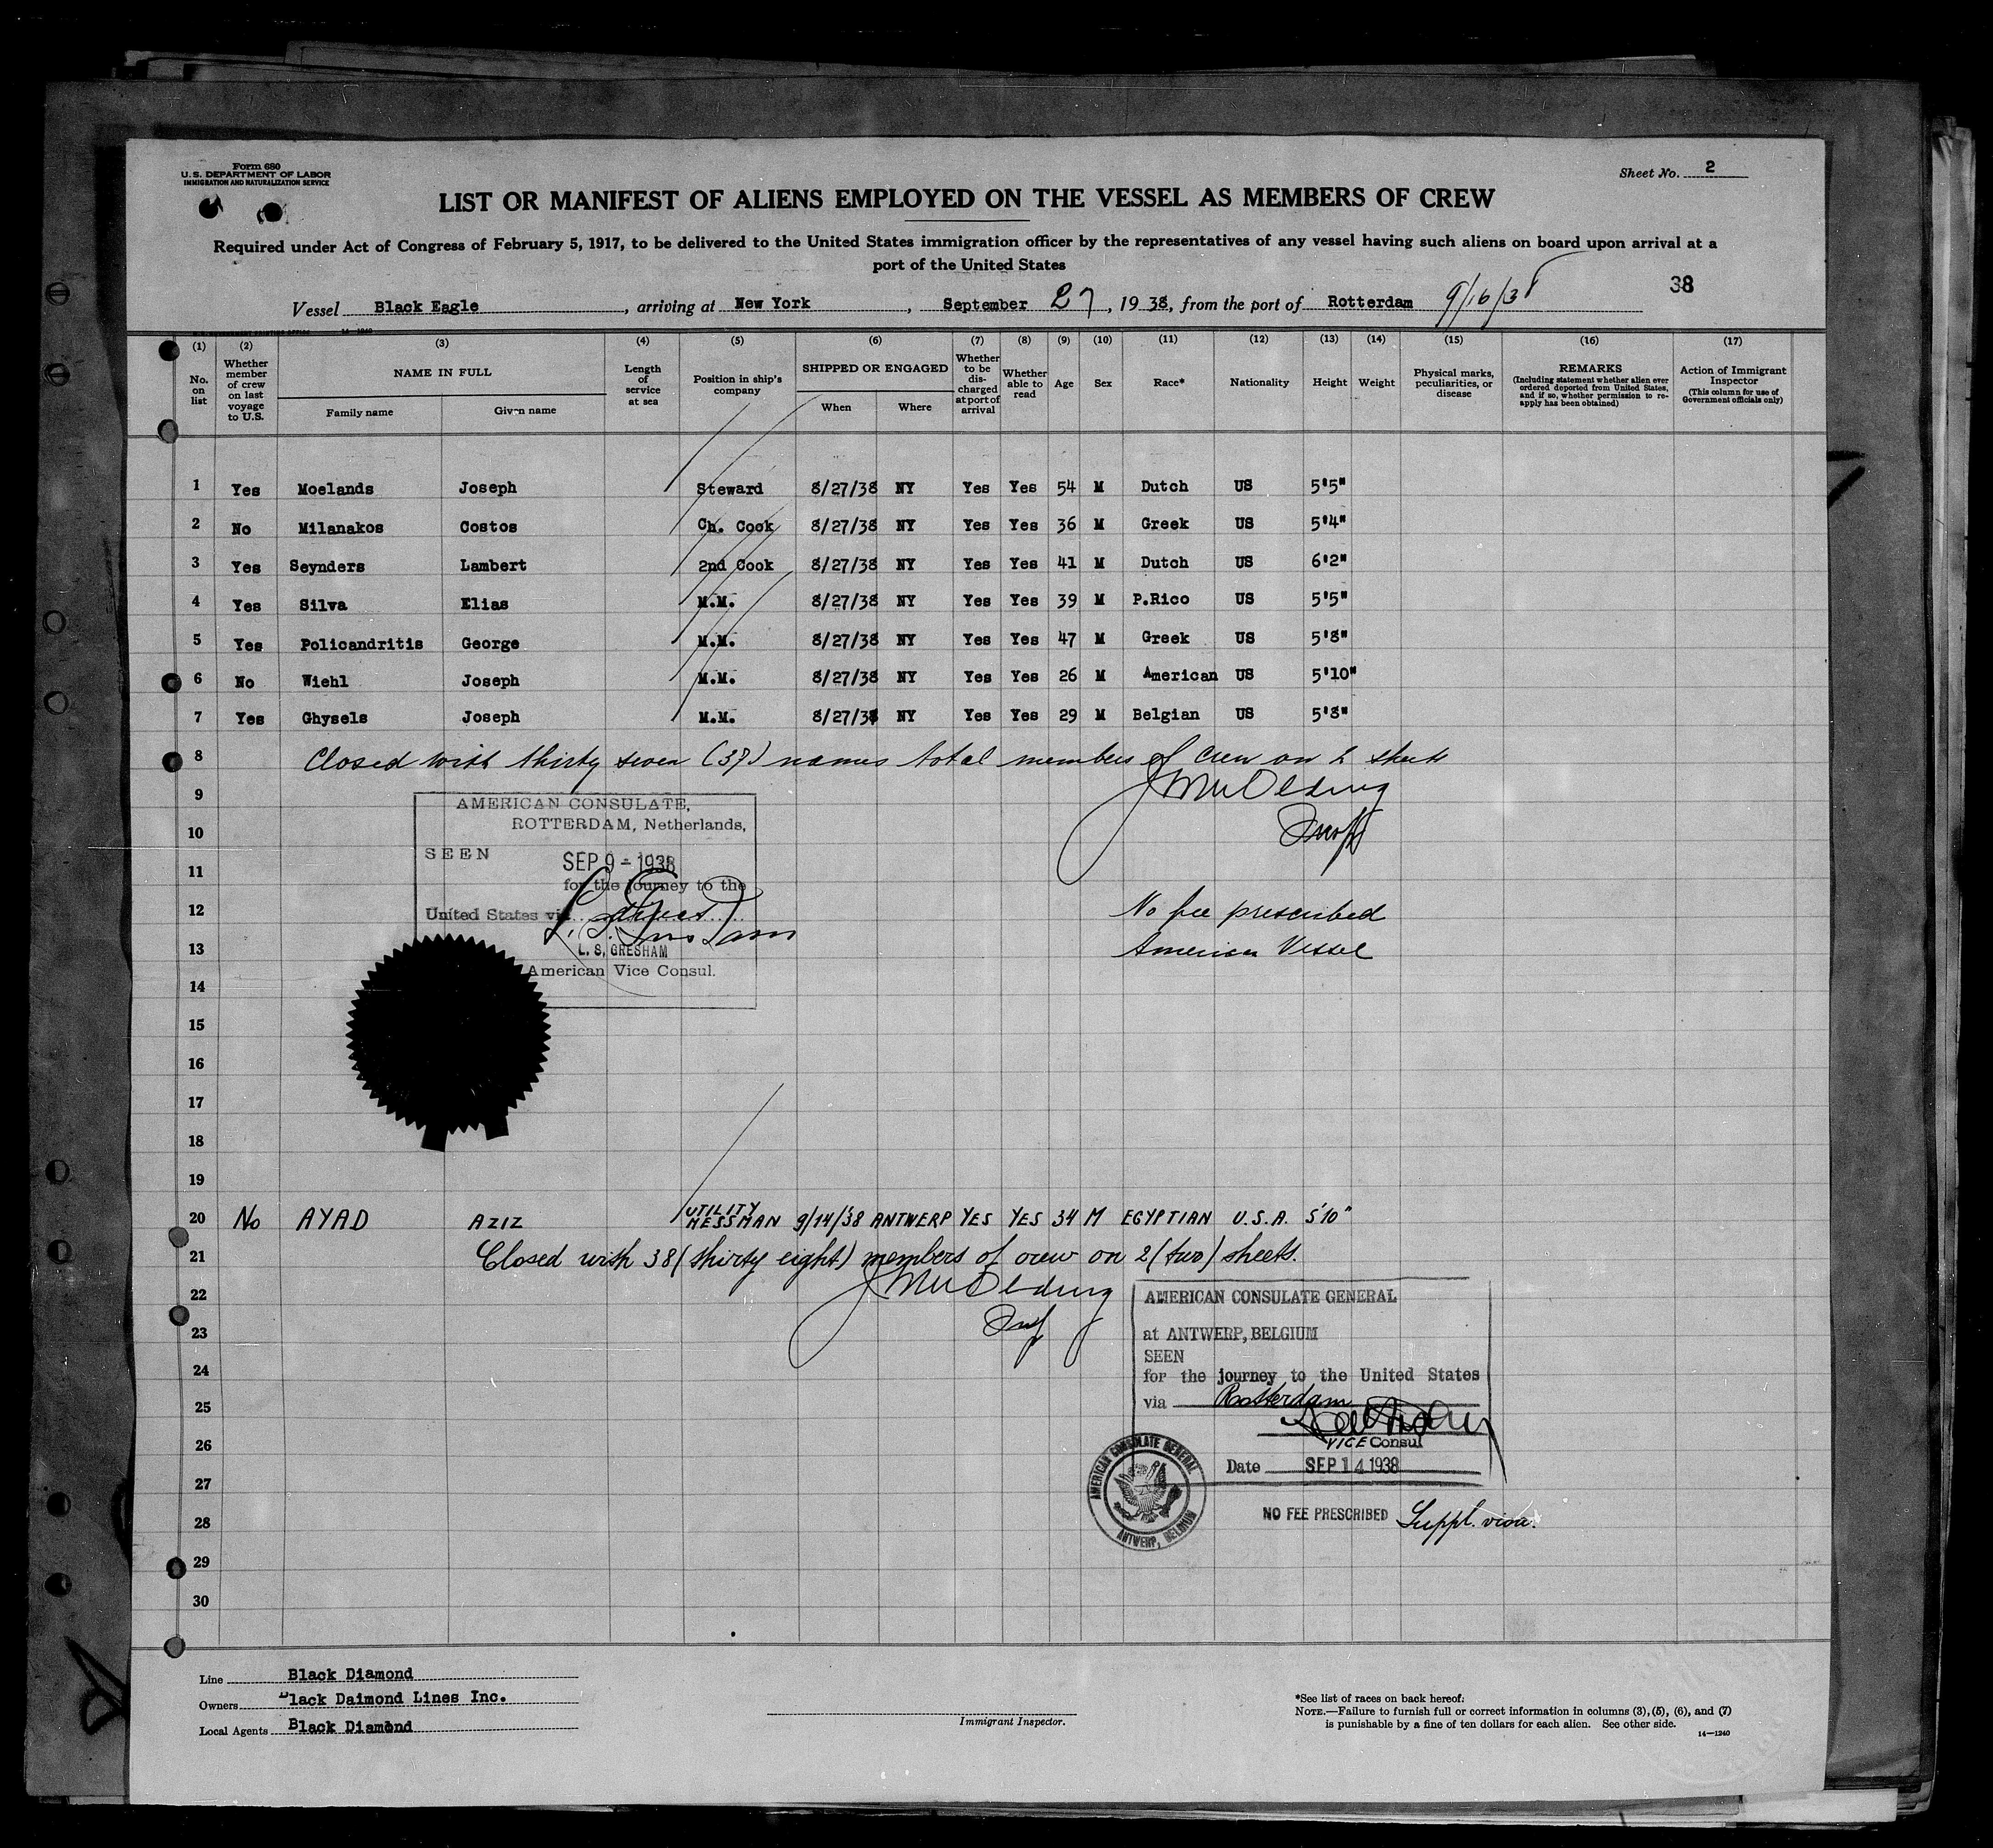 Form 680
U.S. DEPARTMENT OF LABOR
IMMIGRATION AND NATURALIZATION SERVICE
Sheet No. 2
LIST OR MANIFEST OF ALIENS EMPLOYED ON THE VESSEL AS MEMBERS OF CREW
Required under Act of Congress of February 5, 1917, to be delivered to the United States immigration officer by the representatives of any vessel having such aliens on board upon arrival at a
port of the United States
38
Vessel Black Eagle, arriving at New York, September 27, 1938, from the port of Rotterdam 9/16/38
(1) (2) (3) (4) (5) (6) (7) (8) (9) (10) (11) (12) (13) (14) (15) (16) (17)
No. on list
Whether member of crew on last voyage to U.S.
NAME IN FULL
Family name
Given name
Length of service at sea
Position in ship's company
SHIPPED OR ENGAGED
When
Where
Whether to be discharged at port of arrival
Whether able to read
Age
Sex
Race*
Nationality
Height
Weight
Physical marks, peculiarities, or disease
REMARKS
(Including statement whether alien ever ordered deported from United States, and if so, whether permission to reapply has been obtained)
Action of Immigrant Inspector
(This column for use of Government officials only)
1 Yes Moelands Joseph Steward 8/27/38 NY Yes Yes 54 M Dutch US 5'5"
2 No Milanakos Costos Ch. Cook 8/27/38 NY Yes Yes 36 M Greek US 5'4"
3 Yes Seynders Lambert 2nd Cook 8/27/38 NY Yes Yes 41 M Dutch US 6'2"
4 Yes Silva Elias M.M. 8/27/38 NY Yes Yes 39 M P.Rico US 5'5"
5 Yes Policandritis George M.M. 8/27/38 NY Yes Yes 47 M Greek US 5'8"
6 No Wiehl Joseph M.M. 8/27/38 NY Yes Yes 26 M American US 5'10"
7 Yes Ghysels Joseph M.M. 8/27/38 NY Yes Yes 29 M Belgian US 5'8"
8 Closed with thirty seven (37) names total members of crew on 2 sheets
9
10
11
12
13
14
15
16
17
18
19
AMERICAN CONSULATE,
ROTTERDAM, Netherlands,
SEEN
SEP 9 - 1938
for the journey to the
United States via
L. S. GRESHAM
American Vice Consul.
No fee prescribed
American Vessel
20 No AYAD AZIZ UTILITY MESSMAN 9/14/38 ANTWERP YES YES 34 M EGYPTIAN U.S.A. 5'10"
21 Closed with 38 (thirty eight) members of crew on 2 (two) sheets.
22
23
24
25
26
27
28
29
30
AMERICAN CONSULATE GENERAL
at ANTWERP, BELGIUM
SEEN
for the journey to the United States
via Rotterdam
VICE Consul
Date SEP 14 1938
AMERICAN CONSULATE GENERAL
ANTWERP, BELGIUM
NO FEE PRESCRIBED Suppl. visa.
Line Black Diamond
Owners Black Daimond Lines Inc.
Local Agents Black Diamond
Immigrant Inspector.
*See list of races on back hereof.
NOTE.—Failure to furnish full or correct information in columns (3), (5), (6), and (7)
is punishable by a fine of ten dollars for each alien. See other side.
14—1240